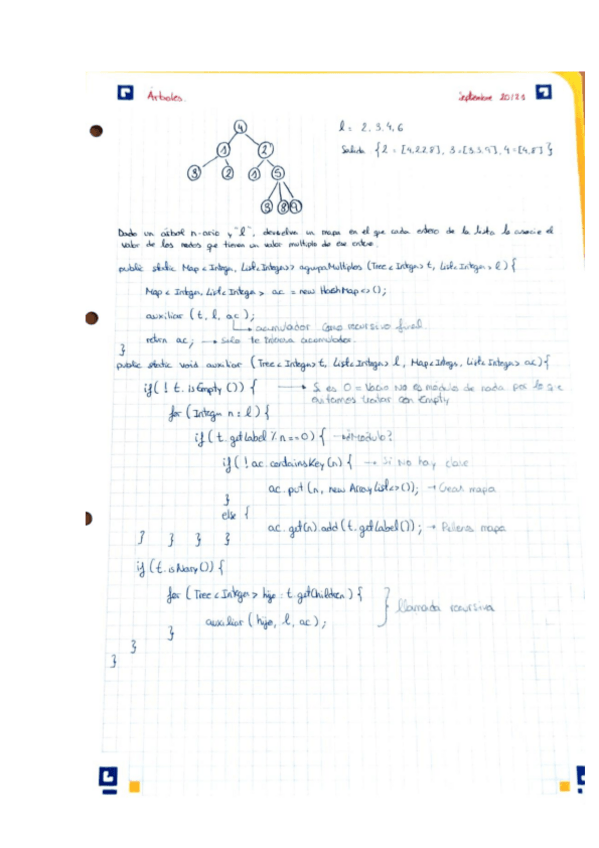 Árboles.
Septiembre 20/21
4
l = 2, 3, 4, 6
1 2
Salida {2 = [4,2,2,8], 3 = [3,3,9], 4 = [4,8]}
3 2 1 5
3 8 9
Dado un árbol n-ario y "l", devuelva un mapa en el que cada entero de la lista lo asocie el
valor de los nodos que tienen un valor multiplo de ese entero.
public static Map<Integer, List<Integer>> agrupaMultiplos (Tree<Integer> t, List<Integer> l) {
Map<Integer, List<Integer> ac = new HashMap<>();
auxiliar (t, l, ac);
acumulador como recursivo final
return ac; → solo te trabaja acumulador.
}
public static void auxiliar (Tree<Integer> t, List<Integer> l, Map<Integer, List<Integer> ac) {
if (! t. isEmpty ()) { → Si es 0 = Vacio No es módulo de nada por lo que
evitamos tratar con Empty
for (Integer n : l) {
if (t. getLabel % n == 0) { → Modulo?
if (! ac. containsKey (n) { → Si No hay clave
ac. put (n, new ArrayList<>()); → Crear mapa
}
else {
ac. get(n). add (t. getLabel ()); → Rellena mapa
} } } }
if (t. isNary ()) {
for (Tree<Integer> hijo : t. getChildren) {
auxiliar (hijo, l, ac);
} llamada recursiva
}
}
}